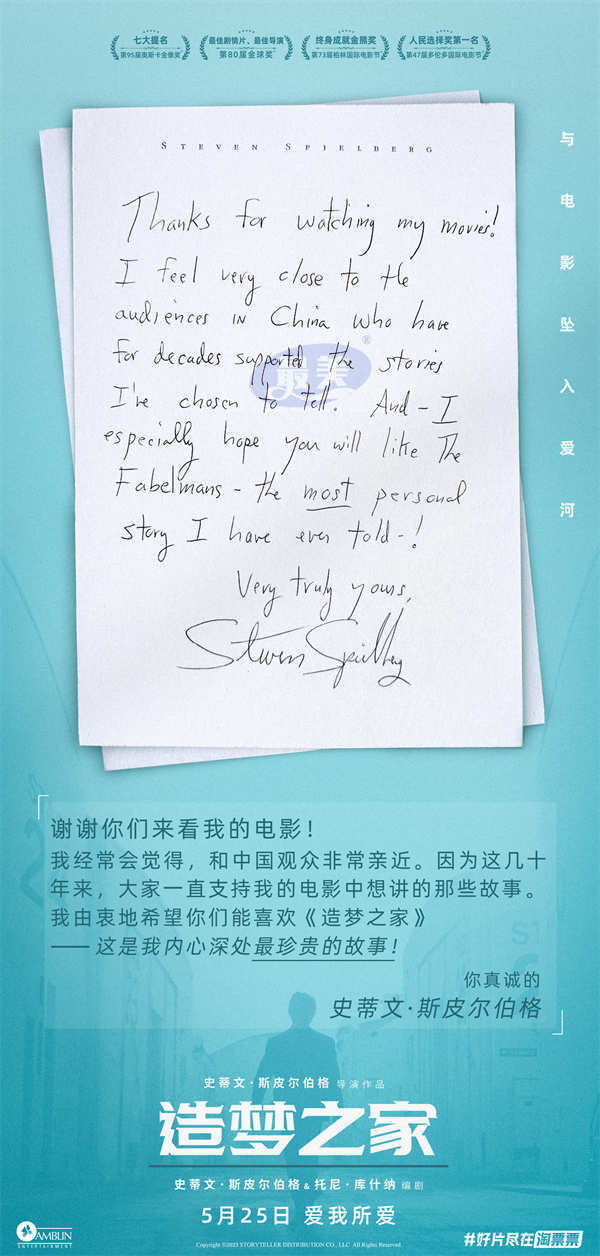 七大提名
第95届奥斯卡金像奖
最佳剧情片、最佳导演
第80届金球奖
终身成就金熊奖
第73届柏林国际电影节
人民选择奖第一名
第47届多伦多国际电影节
与电影坠入爱河
STEVEN SPIELBERG
Thanks for watching my movies!
I feel very close to the
audiences in China who have
for decades supported the stories
I've chosen to tell. And - I
especially hope you will like The
Fabelmans - the most personal
story I have ever told-!
Very truly yours,
Steven Spielberg
最美®
谢谢你们来看我的电影！
我经常会觉得，和中国观众非常亲近。因为这几十
年来，大家一直支持我的电影中想讲的那些故事。
我由衷地希望你们能喜欢《造梦之家》
——这是我内心深处最珍贵的故事！
你真诚的
史蒂文·斯皮尔伯格
史蒂文·斯皮尔伯格 导演作品
造梦之家
史蒂文·斯皮尔伯格&托尼·库什纳 编剧
5月25日 爱我所爱
AMBLIN
ENTERTAINMENT
Copyright ©2023 STORYTELLER DISTRIBUTION CO., LLC All Rights Reserved.
#好片尽在淘票票